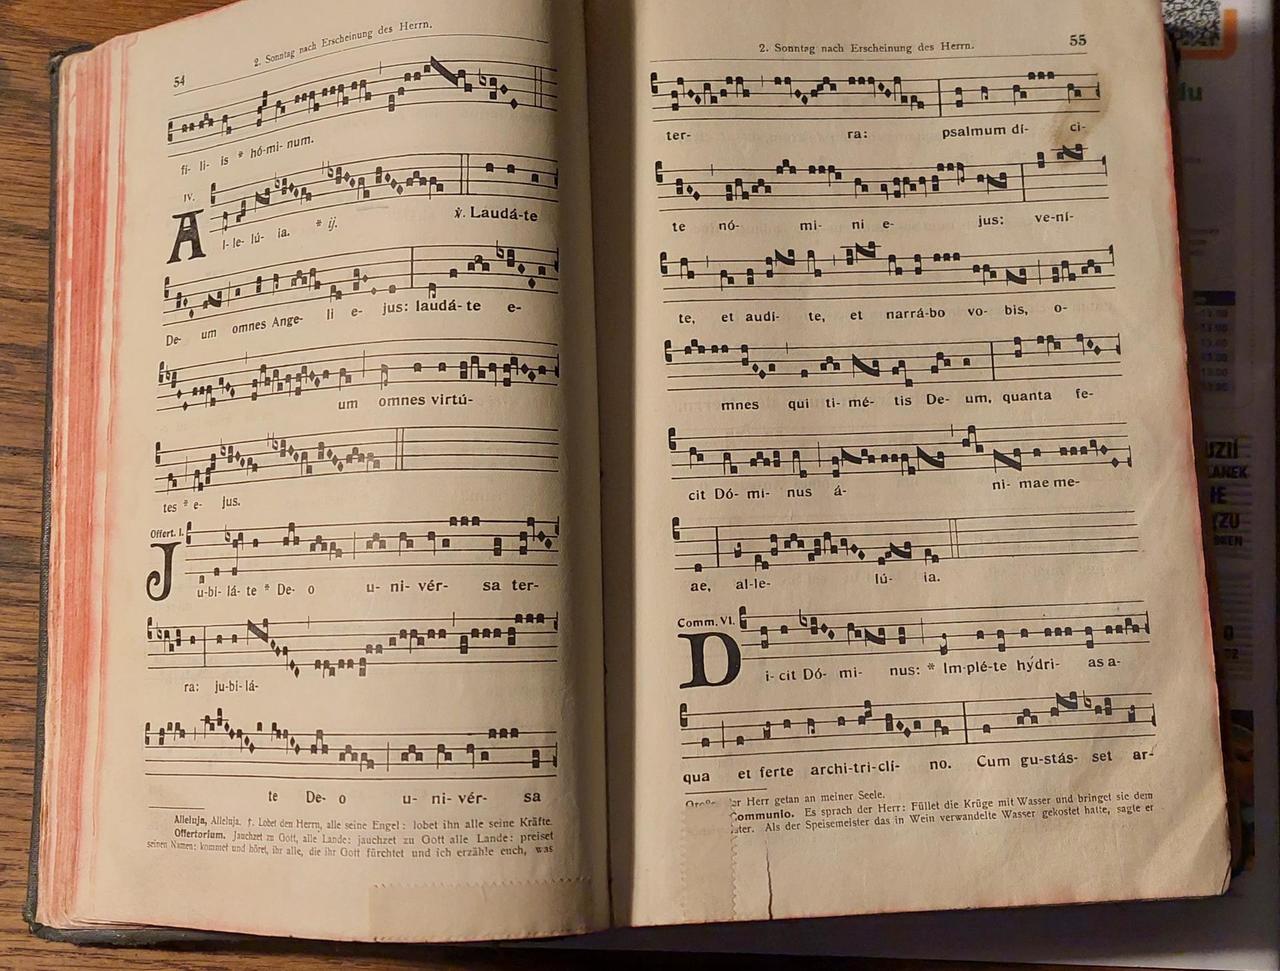 54
2. Sonntag nach Erscheinung des Herrn.
fi- li- is * hó-mi-num.
IV.
A l-le-lú- ia. * ij. ℣. Laudá-te
De- um omnes Ange- li e- jus: laudá-te e-
um omnes virtú-
tes * e- jus.
Offert. I.
J u-bi-lá-te * De- o u- ni- vér- sa ter-
ra: ju-bi-lá-
te De- o u- ni-vér- sa
Alleluja, Alleluja. ℣. Lobet den Herrn, alle seine Engel: lobet ihn alle seine Kräfte.
Offertorium. Jauchzet zu Gott, alle Lande: jauchzet zu Gott alle Lande: preiset
seinen Namen: kommet und höret, ihr alle, die ihr Gott fürchtet und ich erzähle euch, was
2. Sonntag nach Erscheinung des Herrn.
55
ter- ra: psalmum dí- ci-
te nó- mi- ni e- jus: ve-ní-
te, et audí- te, et narrá-bo vo- bis, o-
mnes qui ti-mé- tis De- um, quanta fe-
cit Dó- mi- nus á- ni- mae me-
ae, al-le- lú- ia.
Comm. VI.
D i-cit Dó- mi- nus: * Im-plé-te hýdri- as a-
qua et ferte archi-tri-clí- no. Cum gu-stás- set ar-
der Herr getan an meiner Seele.
Communio. Es sprach der Herr: Füllet die Krüge mit Wasser und bringet sie dem
Als der Speisemeister das in Wein verwandelte Wasser gekostet hatte, sagte er